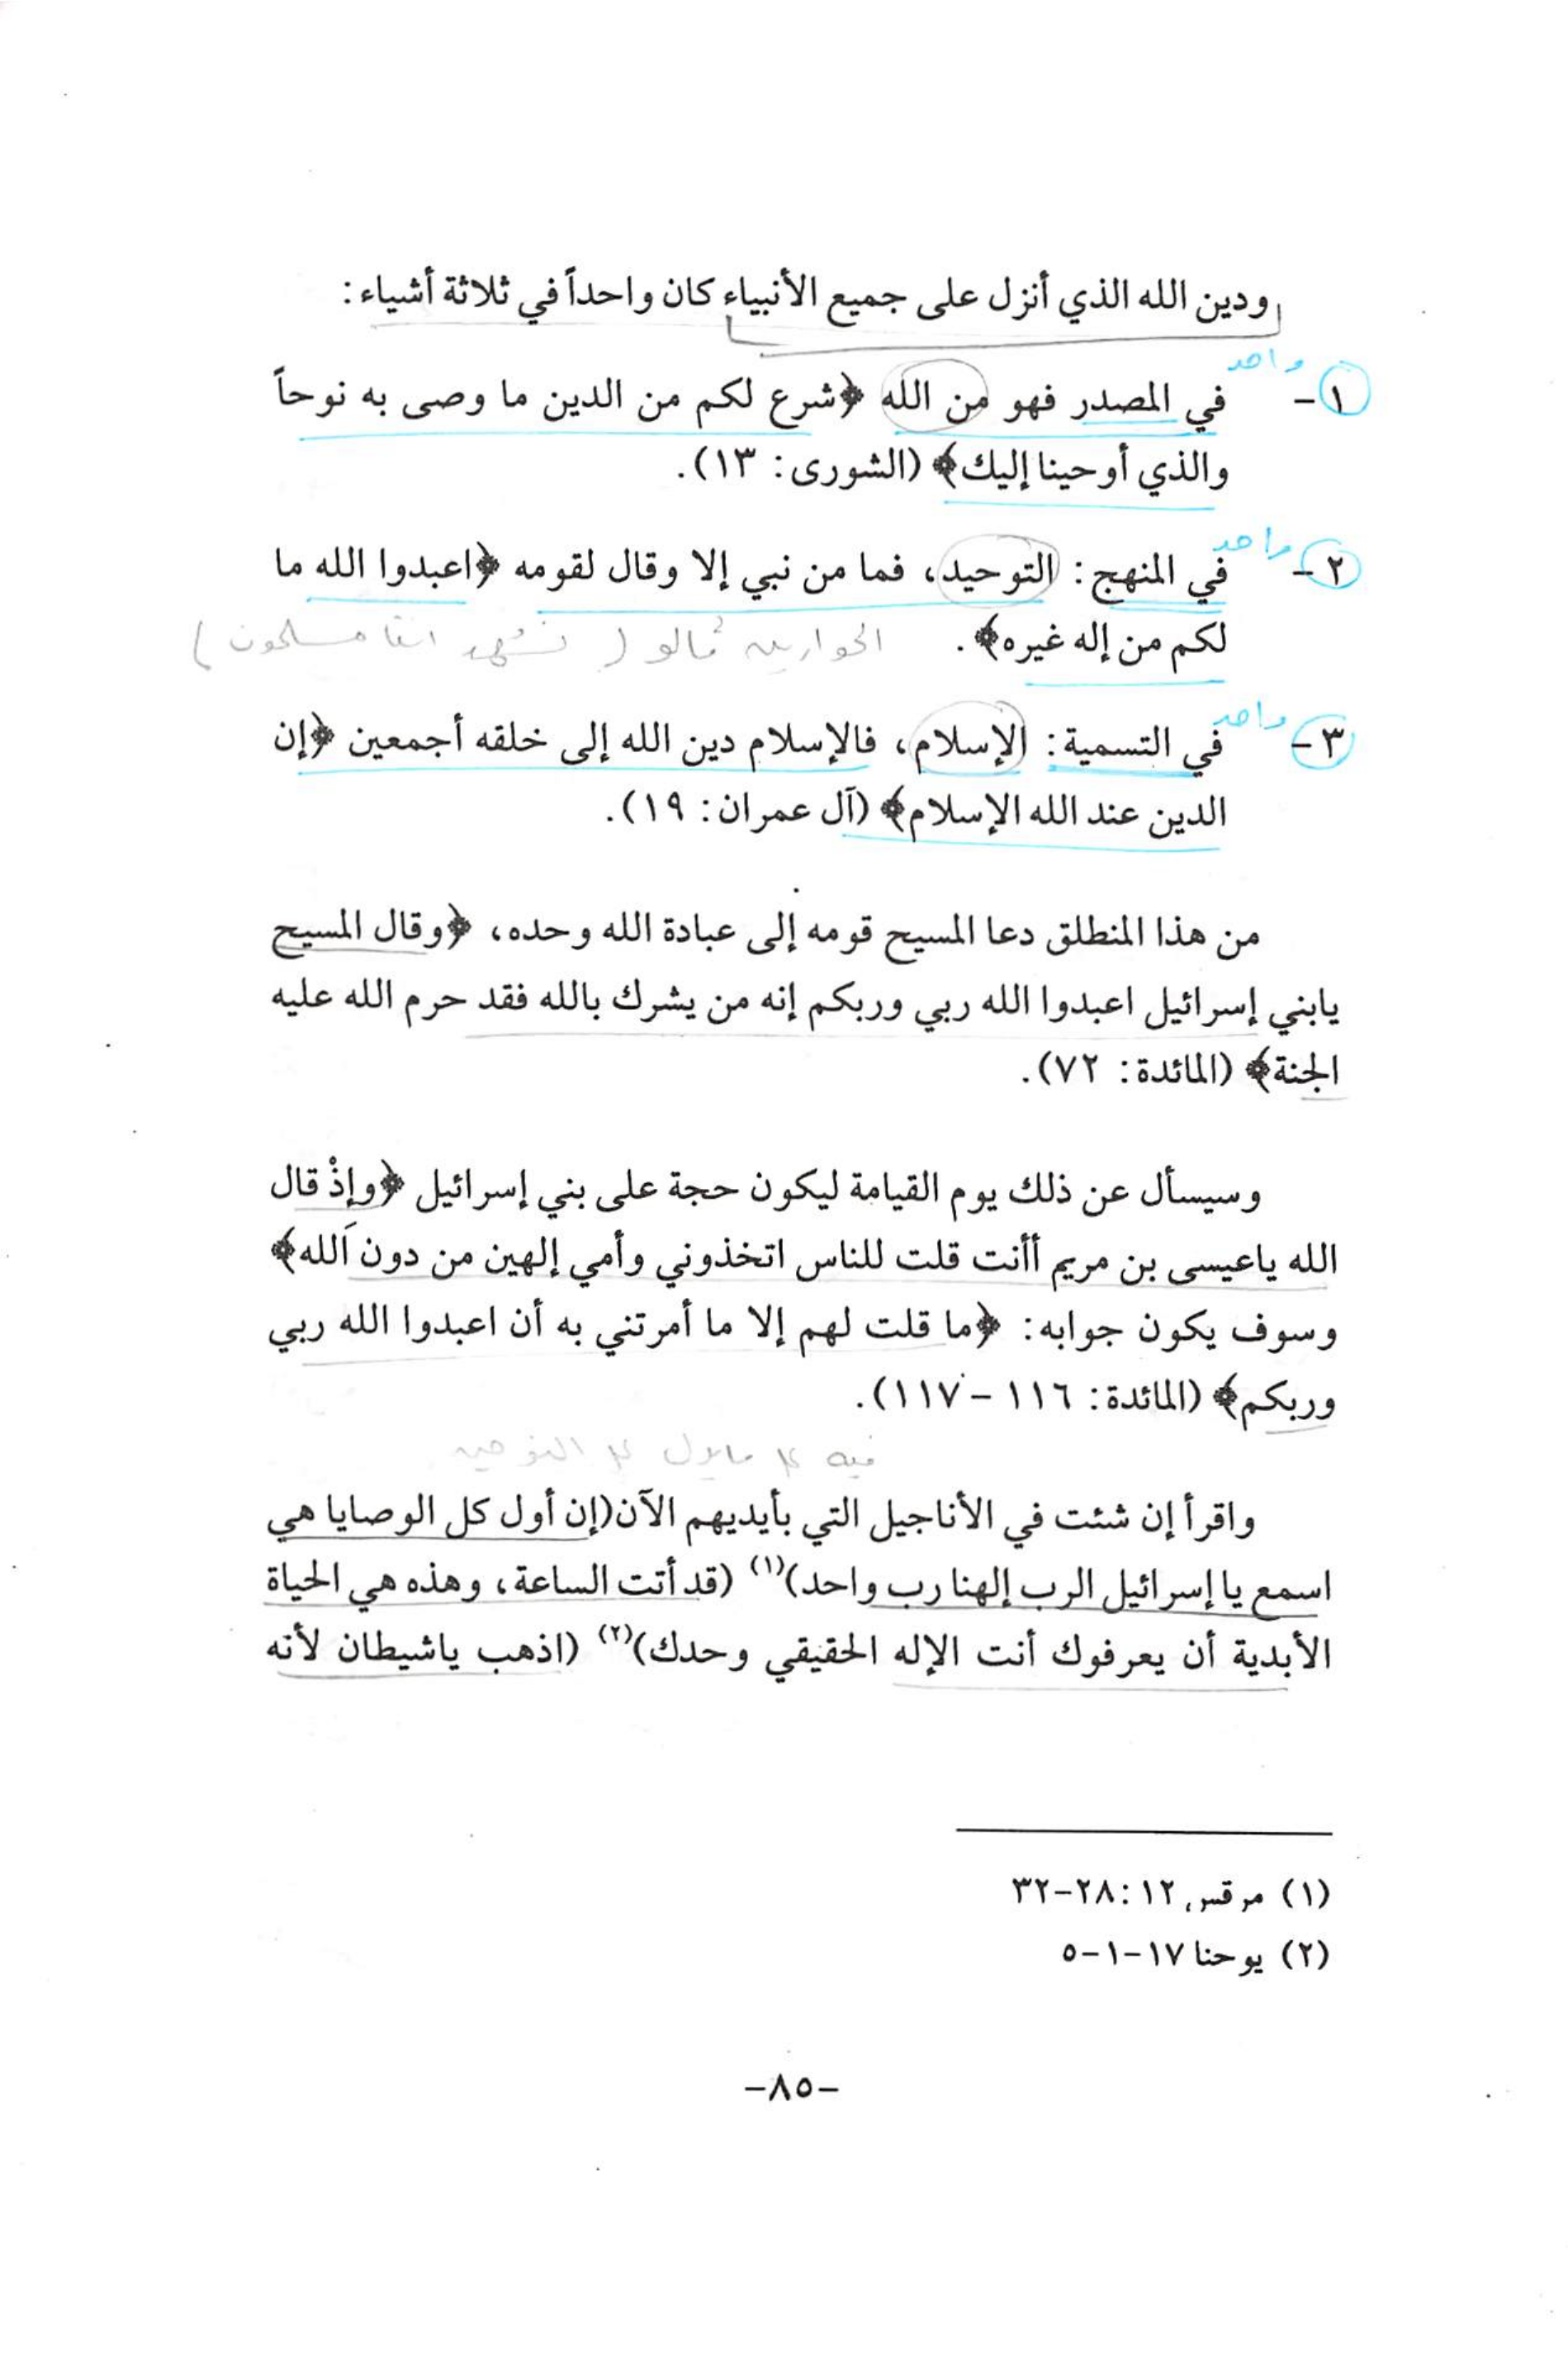 ودين الله الذي أنزل على جميع الأنبياء كان واحداً في ثلاثة أشياء:
واحد
١- في المصدر فهو من الله ﴿شرع لكم من الدين ما وصى به نوحاً
والذي أوحينا إليك﴾ (الشورى: ١٣).
واحد
٢- في المنهج: التوحيد، فما من نبي إلا وقال لقومه ﴿اعبدوا الله ما
لكم من إله غيره﴾. الحواريين قالو ( نشهد اننا مسلمون )
واحد
٣- في التسمية: الإسلام، فالإسلام دين الله إلى خلقه أجمعين ﴿إن
الدين عند الله الإسلام﴾ (آل عمران: ١٩).
من هذا المنطلق دعا المسيح قومه إلى عبادة الله وحده، ﴿وقال المسيح
يابني إسرائيل اعبدوا الله ربي وربكم إنه من يشرك بالله فقد حرم الله عليه
الجنة﴾ (المائدة: ٧٢).
وسيسأل عن ذلك يوم القيامة ليكون حجة على بني إسرائيل ﴿وإذْ قال
الله ياعيسى بن مريم أأنت قلت للناس اتخذوني وأمي إلهين من دون الله﴾
وسوف يكون جوابه: ﴿ما قلت لهم إلا ما أمرتني به أن اعبدوا الله ربي
وربكم﴾ (المائدة: ١١٦ - ١١٧).
فيه مايدل التوحيد
واقرأ إن شئت في الأناجيل التي بأيديهم الآن(إن أول كل الوصايا هي
اسمع يا إسرائيل الرب إلهنا رب واحد)(١) (قد أتت الساعة، وهذه هي الحياة
الأبدية أن يعرفوك أنت الإله الحقيقي وحدك)(٢) (اذهب ياشيطان لأنه
(١) مرقس، ١٢: ٢٨-٣٢
(٢) يوحنا ١٧-١-٥
-٨٥-